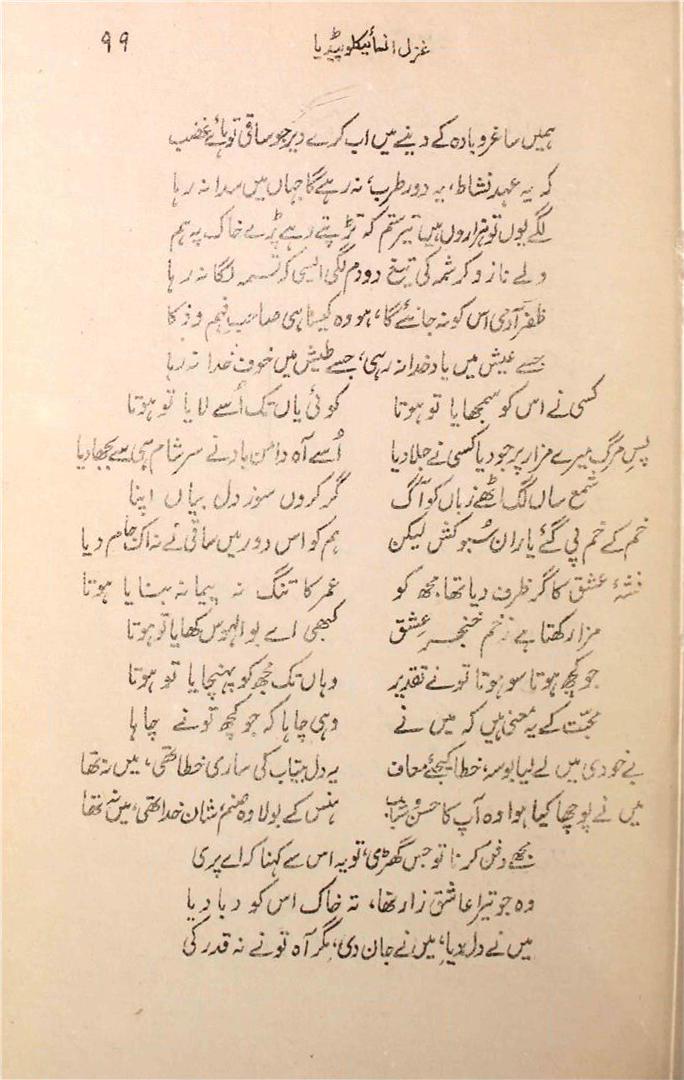 غزل انسائیکلوپیڈیا ۹۹
ہمیں ساغر و بادہ کے دینے میں اب کرے دیر جو ساقی تو ہائے غضب
کہ یہ عہد نشاط، یہ دور طرب، نہ رہے گا جہاں میں سدا نہ رہا
لگے یوں تو ہزاروں ہیں تیر ستم کہ تڑپتے رہے پڑے خاک پہ ہم
ولے ناز و کرشمہ کی تیغ دو دم لگی ایسی کہ تسمہ لگا نہ رہا
ظفر آدمی اس کو نہ جانئے گا، ہو وہ کیسا ہی صاحب فہم و ذکا
جسے عیش میں یاد خدا نہ رہی، جسے طیش میں خوف خدا نہ رہا
کسی نے اس کو سمجھایا تو ہوتا کوئی یاں تک اُسے لایا تو ہوتا
پسِ مرگ میرے مزار پر جو دیا کسی نے جلا دیا اُسے آہ دامن باد نے سر شام ہی سے بجھا دیا
شمع ساں لگ اٹھے زباں کو آگ گر کروں سوز دل بیاں اپنا
خم کے خم پی گئے یاران سُبو کش لیکن ہم کو اس دور میں ساقی نے نہ اک جام دیا
نشۂ عشق کا گر ظرف دیا تھا مجھ کو عمر کا تنگ نہ پیمانہ بنایا ہوتا
مزا رکھتا ہے زخم خنجرِ عشق کبھی اے بو الہوس کھایا تو ہوتا
جو کچھ ہوتا سو ہوتا تو نے تقدیر وہاں تک مجھ کو پہنچایا تو ہوتا
محبّت کے یہ معنی ہیں کہ میں نے وہی چاہا کہ جو کچھ تو نے چاہا
بے خودی میں لے لیا بوسہ، خطا کیجئے معاف یہ دل بیتاب کی ساری خطا تھی، میں نہ تھا
میں نے پوچھا کیا ہوا وہ آپ کا حسن و شباب ہنس کے بولا وہ صنم، شان خدا تھی، میں نہ تھا
مجھے دفن کرنا تو جس گھڑی، تو یہ اس سے کہنا کہ اے پری
وہ جو تیرا عاشق زار تھا، تہ خاک اس کو دبا دیا
میں نے دل دیا، میں نے جان دی، مگر آہ تو نے نہ قدر کی